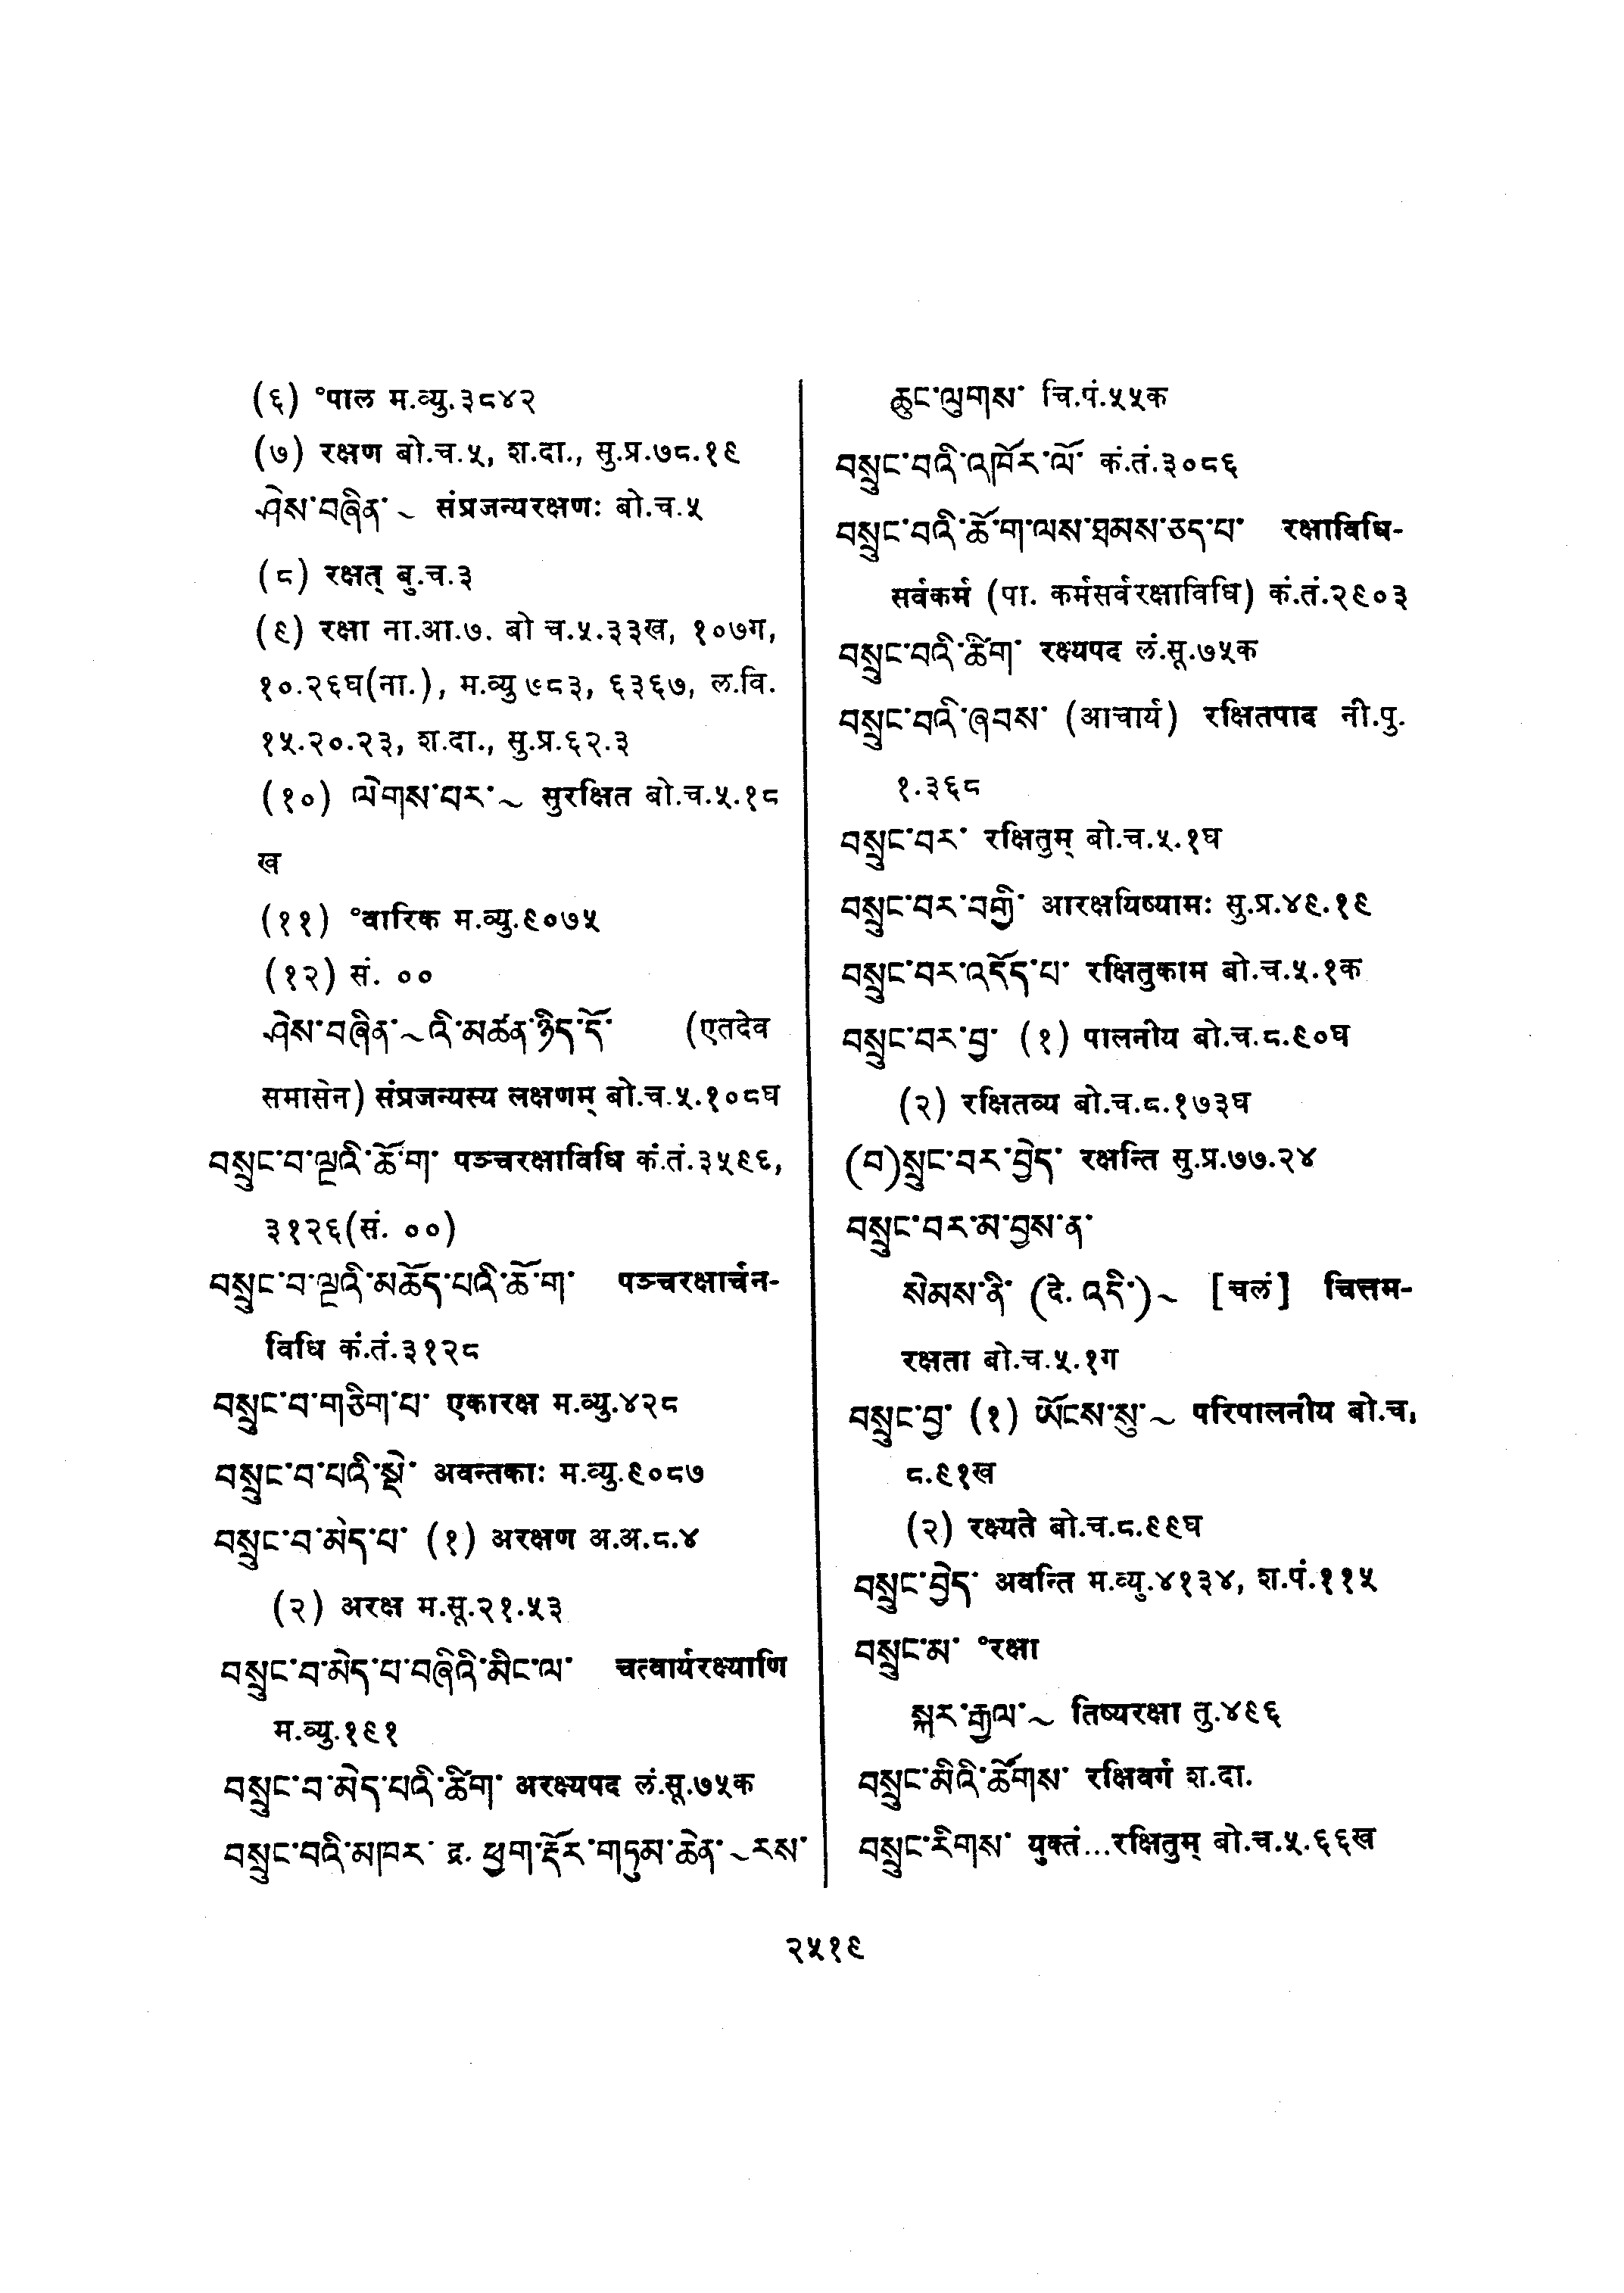 (६) °पाल म.व्यु.३८४२
(७) रक्षण बो.च.५, श.दा., सु.प्र.७८.१९
ཤེས་བཞིན་ ~ संप्रजन्यरक्षणः बो.च.५
(८) रक्षत् बु.च.३
(९) रक्षा ना.आ.७. बो च.५.३३ख, १०७ग,
१०.२६घ(ना.), म.व्यु ७८३, ६३६७, ल.वि.
१५.२०.२३, श.दा., सु.प्र.६२.३
(१०) ལེགས་བར་ ~ सुरक्षित बो.च.५.१८
ख
(११) °वारिक म.व्यु.९०७५
(१२) सं. ००
ཤེས་བཞིན་ ~ འི་མཚན་ཉིད་དོ་ (एतदेव
समासेन) संप्रजन्यस्य लक्षणम् बो.च.५.१०८घ
བསྲུང་བ་ལྔའི་ཆོ་ག་ पञ्चरक्षाविधि कं.तं.३५९६,
३१२६(सं. ००)
བསྲུང་བ་ལྔའི་མཆོད་པའི་ཆོ་ག་ पञ्चरक्षार्चन-
विधि कं.तं.३१२८
བསྲུང་བ་གཅིག་པ་ एकारक्ष म.व्यु.४२८
བསྲུང་བ་པའི་སྡེ་ अवन्तकाः म.व्यु.९०८७
བསྲུང་བ་མེད་པ་ (१) अरक्षण अ.अ.८.४
(२) अरक्ष म.सू.२१.५३
བསྲུང་བ་མེད་པ་བཞིའི་མིང་ལ་ चत्वार्यरक्ष्याणि
म.व्यु.१९१
བསྲུང་བ་མེད་པའི་ཚིག་ अरक्ष्यपद लं.सू.७५क
བསྲུང་བའི་མཁར་ द्र. ཕྱག་རྡོར་གཏུམ་ཆེན་ ~ རས་
ཆུང་ལུགས་ चि.पं.५५क
བསྲུང་བའི་འཁོར་ལོ་ कं.तं.३०८६
བསྲུང་བའི་ཆོ་ག་ལས་ཐམས་ཅད་པ་ रक्षाविधि-
सर्वकर्म (पा. कर्मसर्वरक्षाविधि) कं.तं.२९०३
བསྲུང་བའི་ཚིག་ रक्ष्यपद लं.सू.७५क
བསྲུང་བའི་ཞབས་ (आचार्य) रक्षितपाद नी.पु.
१.३६८
བསྲུང་བར་ रक्षितुम् बो.च.५.१घ
བསྲུང་བར་བགྱི་ आरक्षयिष्यामः सु.प्र.४९.१९
བསྲུང་བར་འདོད་པ་ रक्षितुकाम बो.च.५.१क
བསྲུང་བར་བྱ་ (१) पालनीय बो.च.८.९०घ
(२) रक्षितव्य बो.च.८.१७३घ
(བ)སྲུང་བར་བྱེད་ रक्षन्ति सु.प्र.७७.२४
བསྲུང་བར་མ་བྱས་ན་
སེམས་ནི་ (दे. འདི་) ~ [चलं] चित्तम-
रक्षता बो.च.५.१ग
བསྲུང་བྱ་ (१) ཡོངས་སུ་ ~ परिपालनीय बो.च.
८.९१ख
(२) रक्ष्यते बो.च.८.९९घ
བསྲུང་བྱེད་ अवन्ति म.व्यु.४१३४, श.पं.११५
བསྲུང་མ་ °रक्षा
སྐར་རྒྱལ་ ~ तिष्यरक्षा तु.४९६
བསྲུང་མིའི་ཚོགས་ रक्षिवर्ग श.दा.
བསྲུང་རིགས་ युक्तं...रक्षितुम् बो.च.५.६६ख
२५१९